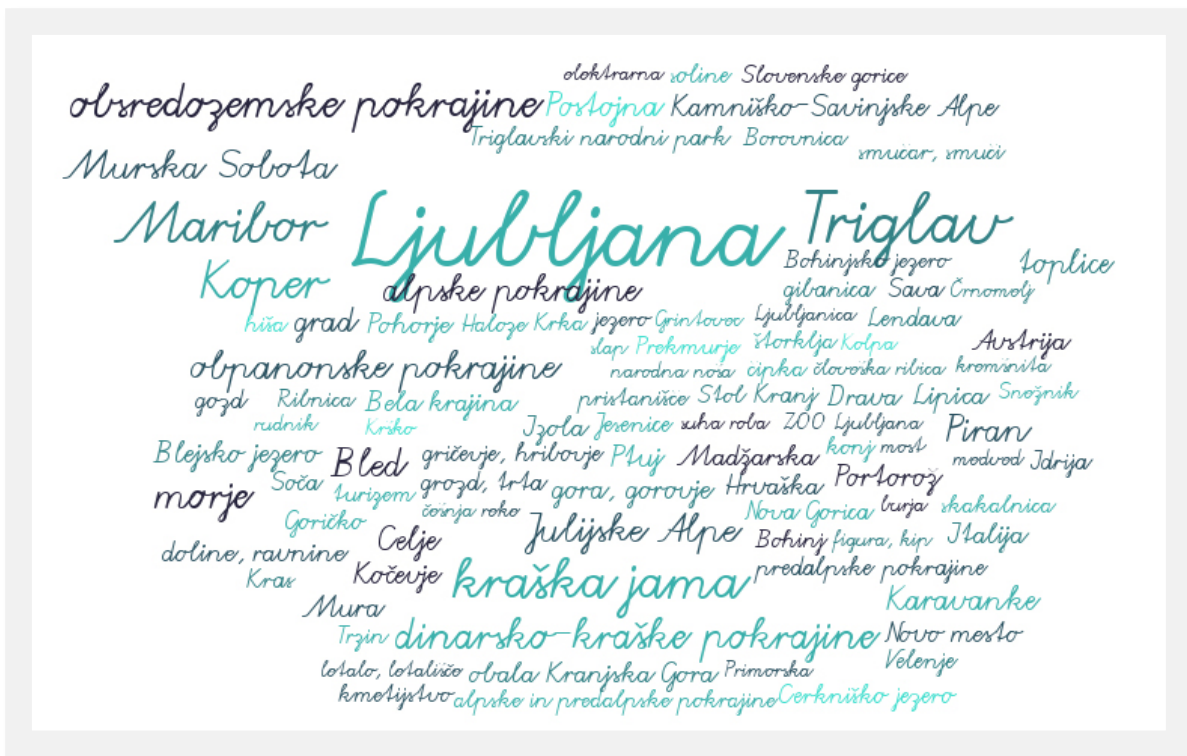 elektrarna soline Slovenske gorice
obsredozemske pokrajine Postojna Kamniško-Savinjske Alpe
Triglavski narodni park Borovnica smučar, smuči
Murska Sobota
Maribor Ljubljana Triglav
Bohinjsko jezero toplice
Koper alpske pokrajine gibanica Sava Črnomelj
hiša grad Pohorje Haloze Krka jezero Grintovec Ljubljanica Lendava
slap Prekmurje štorklja Kolpa Avstrija
obpanonske pokrajine narodna noša čipka človeška ribica kremšnita
gozd Ribnica Bela krajina pristanišče Stol Kranj Drava Lipica Snežnik
rudnik Krško Izola Jesenice suha roba ZOO Ljubljana Piran
Blejsko jezero Bled gričevje, hribovje Ptuj Madžarska konj most medved Idrija
morje Soča turizem grozd, trta gora, gorovje Hrvaška Portorož
Goričko češnja reke Nova Gorica burja skakalnica
doline, ravnine Celje Julijske Alpe Bohinj figura, kip Italija
Kras Kočevje kraška jama predalpske pokrajine
Mura Karavanke
Trzin dinarsko-kraške pokrajine Novo mesto
letalo, letališče obala Kranjska Gora Primorska Velenje
kmetijstvo alpske in predalpske pokrajine Cerkniško jezero